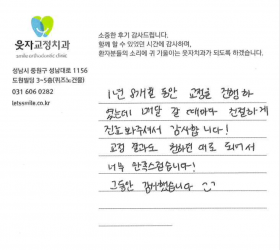 소중한 후기 감사드립니다.
함께 할 수 있었던 시간에 감사하며,
환자분들의 소리에 귀 기울이는 웃자치과가 되도록 하겠습니다.
웃자교정치과
성남시 중원구 성남대로 1156
도원빌딩 3~5층(퀴즈노건물)
031 606 0282
letssmile.co.kr
1년 8개월 동안 교정을 진행 하
였는데 1개월 갈 때마다 친절하게
진료 봐주셔서 감사합니다!
교정 결과도 원하던 대로 되어서
너무 만족스럽습니다!
그동안 감사했습니다